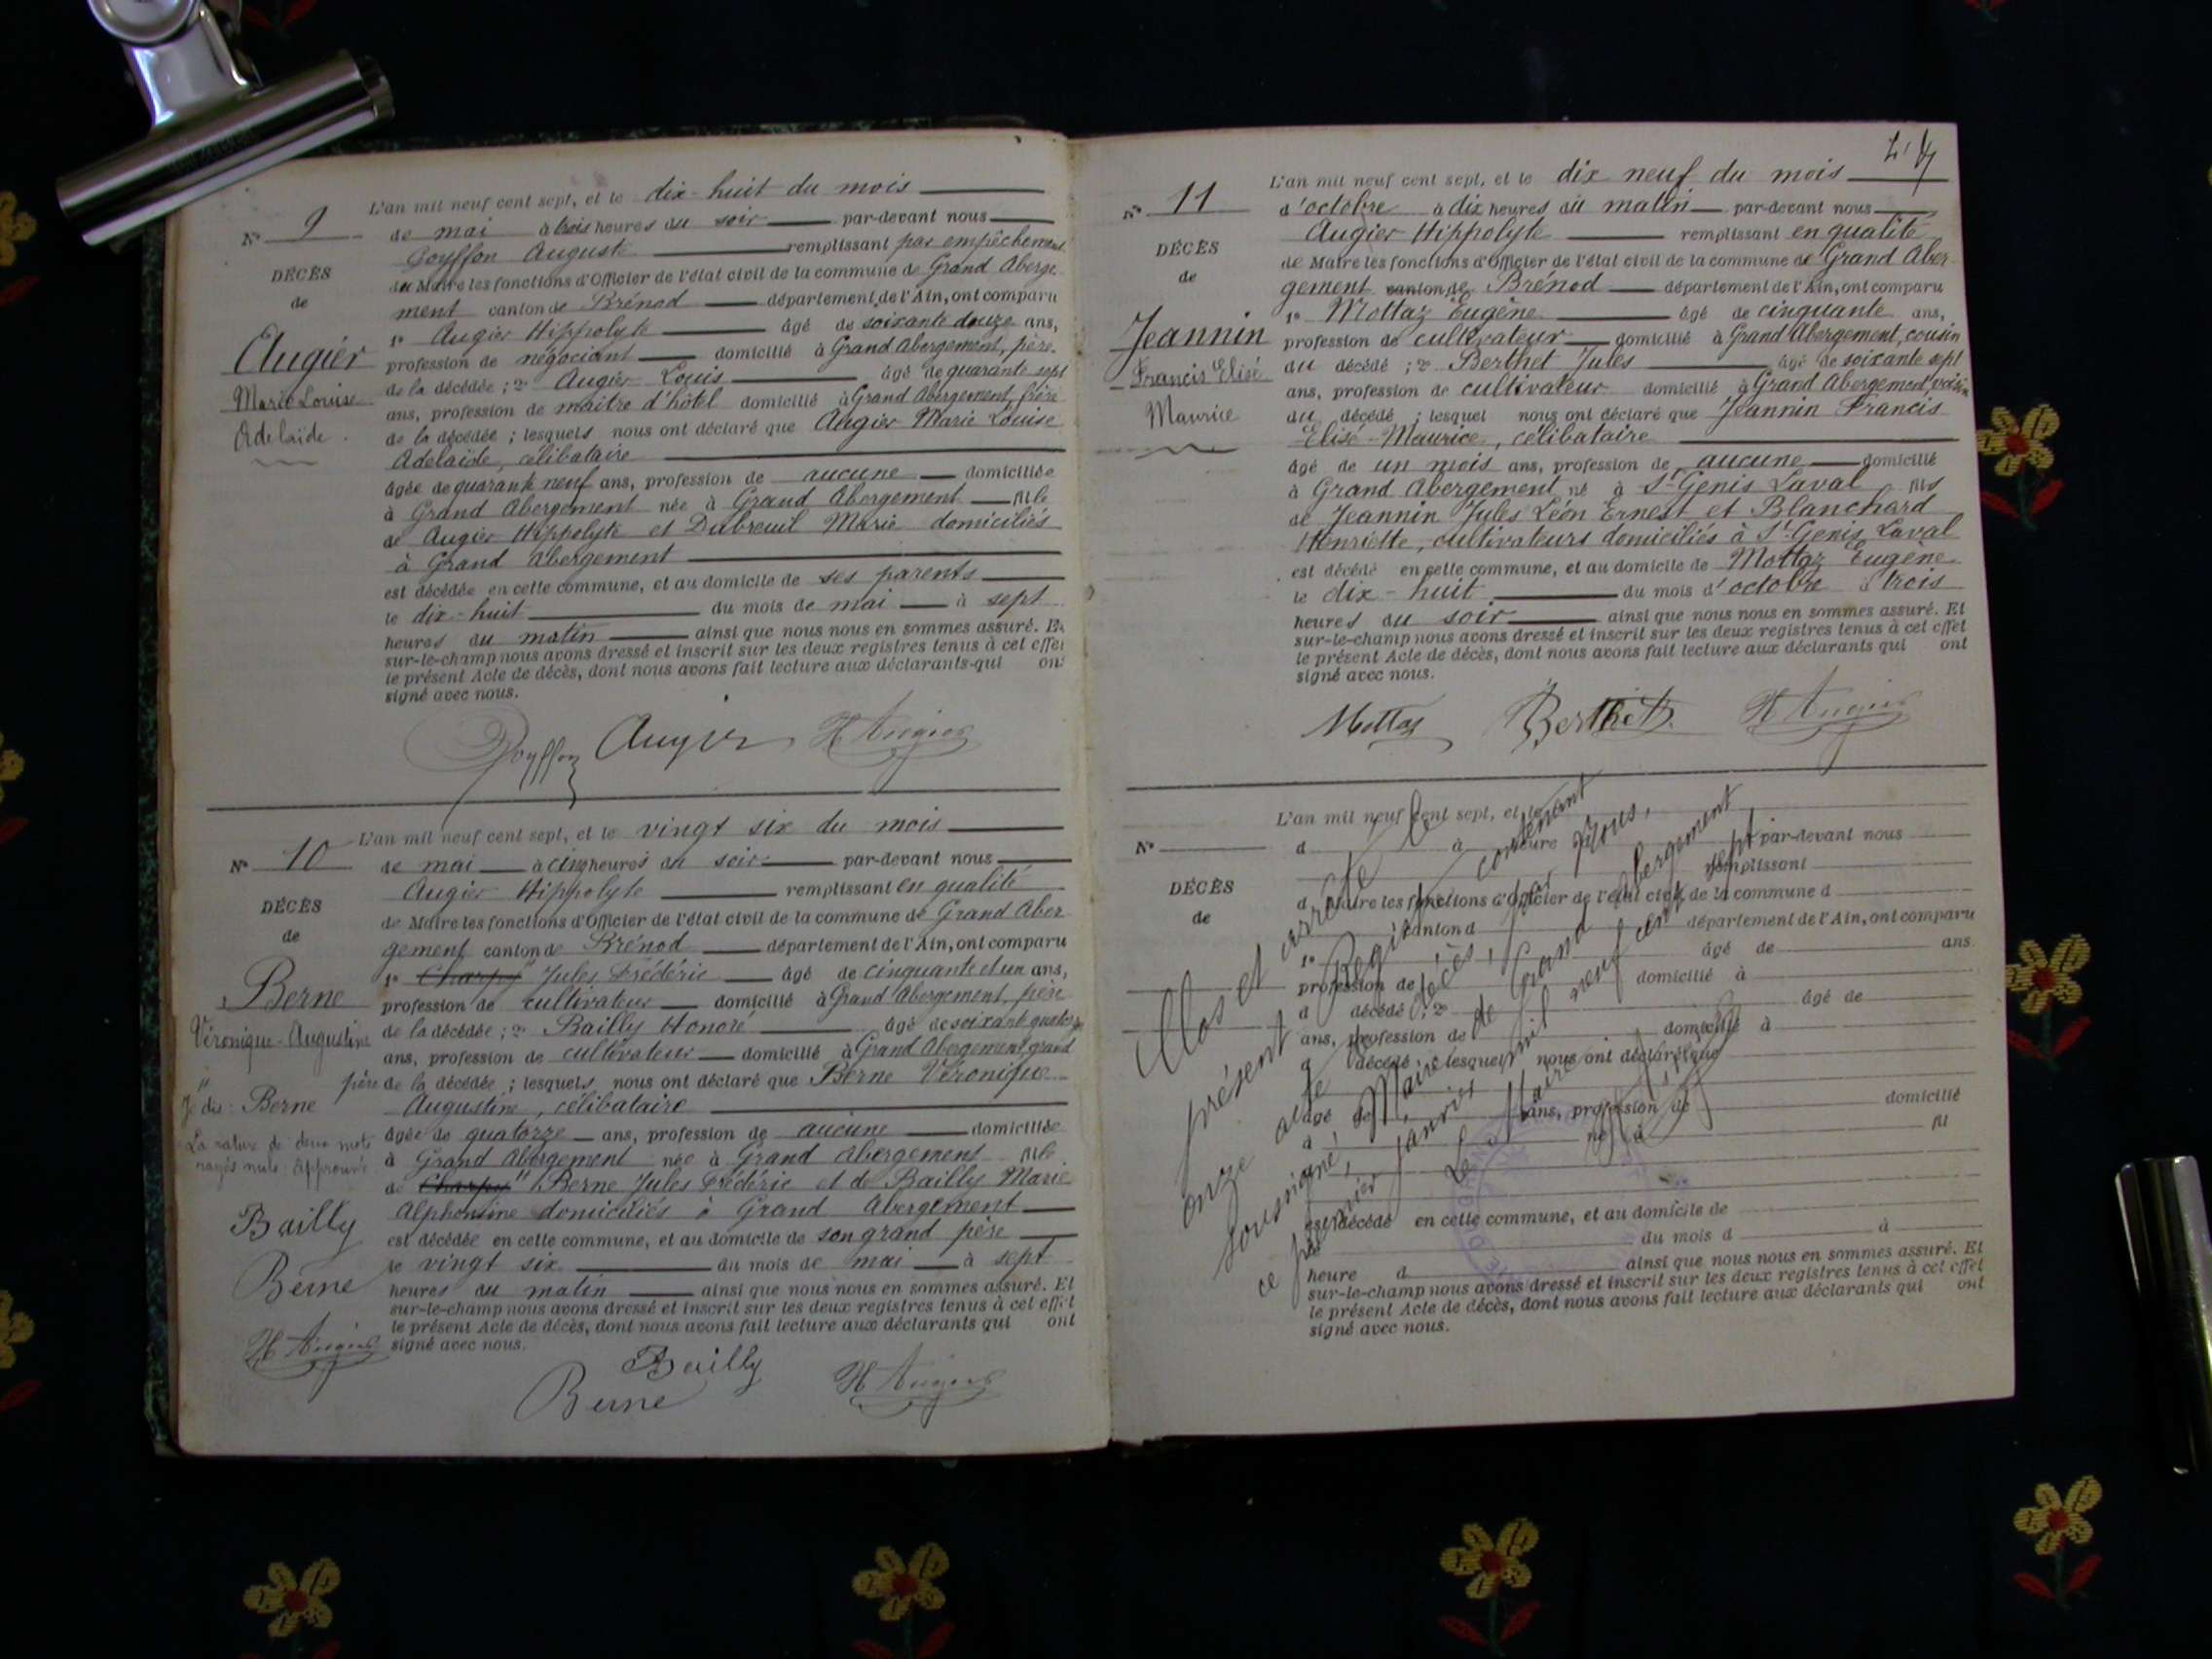 L'an mil neuf cent sept, et le dix-huit du mois
N° 9
de mai à trois heures du soir par-devant nous
Goyffon Auguste remplissant par empêchement
du Maire les fonctions d'Officier de l'état civil de la commune de Grand Aberge-
DÉCÈS
de
ment canton de Brénod département de l'Ain, ont comparu
1° Augier Hippolyte âgé de soixante douze ans,
Augier
profession de négociant domicilié à Grand Abergement, père
de la décédée ; 2° Augier Louis âgé de quarante sept
Marie Louise
ans, profession de maître d'hôtel domicilié à Grand Abergement, frère
Adelaïde.
de la décédée ; lesquels nous ont déclaré que Augier Marie Louise
Adelaïde, célibataire
âgée de quarante neuf ans, profession de aucune domiciliée
à Grand Abergement née à Grand Abergement fille
de Augier Hippolyte et Dubreuil Marie domiciliés
à Grand Abergement
est décédée en cette commune, et au domicile de ses parents
le dix-huit du mois de mai à sept
heures du matin ainsi que nous nous en sommes assuré. Et
sur-le-champ nous avons dressé et inscrit sur les deux registres tenus à cet effet
le présent Acte de décès, dont nous avons fait lecture aux déclarants qui ont
signé avec nous.
Goyffon Augier H Augier
L'an mil neuf cent sept, et le vingt six du mois
N° 10
de mai à cinq heures du soir par-devant nous
Augier Hippolyte remplissant en qualité
DÉCÈS
de Maire les fonctions d'Officier de l'état civil de la commune de Grand Aber
de
gement canton de Brénod département de l'Ain, ont comparu
1° Charpy " Jules Frédéric âgé de cinquante et un ans,
Berne
profession de cultivateur domicilié à Grand Abergement, père
Véronique-Augustine
de la décédée ; 2° Bailly Honoré âgé de soixante quatorze
ans, profession de cultivateur domicilié à Grand Abergement, grand
père de la décédée ; lesquels nous ont déclaré que Berne Véronique
" Je dis : Berne
Augustine, célibataire
La rature de deux mots
rayés nuls approuvée
âgée de quatorze ans, profession de aucune domiciliée
à Grand Abergement née à Grand Abergement fille
de Charpy " Berne Jules Frédéric et de Bailly Marie
Alphonsine domiciliés à Grand Abergement
Bailly
est décédée en cette commune, et au domicile de son grand père
le vingt six du mois de mai à sept
Berne
heures du matin ainsi que nous nous en sommes assuré. Et
sur-le-champ nous avons dressé et inscrit sur les deux registres tenus à cet effet
le présent Acte de décès, dont nous avons fait lecture aux déclarants qui ont
H Augier
signé avec nous.
Bailly
Berne H Augier
L'an mil neuf cent sept, et le dix neuf du mois
N° 11
d'octobre à dix heures du matin par-devant nous
Augier Hippolyte remplissant en qualité
DÉCÈS
de Maire les fonctions d'Officier de l'état civil de la commune de Grand Aber
de
gement canton de Brénod département de l'Ain, ont comparu
1° Mottaz Eugène âgé de cinquante ans,
Jeannin
profession de cultivateur domicilié à Grand Abergement, cousin
du décédé ; 2° Berthet Jules âgé de soixante sept
Francis Elisé
ans, profession de cultivateur domicilié à Grand Abergement voisin
Maurice
du décédé ; lesquel nous ont déclaré que Jeannin Francis
Elisé-Maurice, célibataire
âgé de un mois ans, profession de aucune domicilié
à Grand Abergement né à St Genis Laval fils
de Jeannin Jules Léon Ernest et Blanchard
Henriette, cultivateurs domiciliés à St Genis Laval
est décédé en cette commune, et au domicile de Mottaz Eugène
le dix-huit du mois d'octobre à trois
heures du soir ainsi que nous nous en sommes assuré. Et
sur-le-champ nous avons dressé et inscrit sur les deux registres tenus à cet effet
le présent Acte de décès, dont nous avons fait lecture aux déclarants qui ont
signé avec nous.
Mottaz Berthet H Augier
L'an mil neuf cent sept, et le
N°
d à heure par-devant nous
remplissant
DÉCÈS
d Maire les fonctions d'Officier de l'état civil de la commune d
de
canton d département de l'Ain, ont comparu
1° âgé de ans
profession de domicilié à
d décédé ; 2° âgé de
ans, profession de domicilié à
d décédé ; lesquel nous ont déclaré que
âgé de ans, profession de domicilié
à né à fil
est décédé en cette commune, et au domicile de
le du mois d à
heure d ainsi que nous nous en sommes assuré. Et
sur-le-champ nous avons dressé et inscrit sur les deux registres tenus à cet effet
le présent Acte de décès, dont nous avons fait lecture aux déclarants qui ont
signé avec nous.
Clos et arrêté le
présent Registre contenant
onze actes de décès, par Nous,
soussigné, Maire de Grand Abergement
ce premier janvier mil neuf cent sept
Le Maire